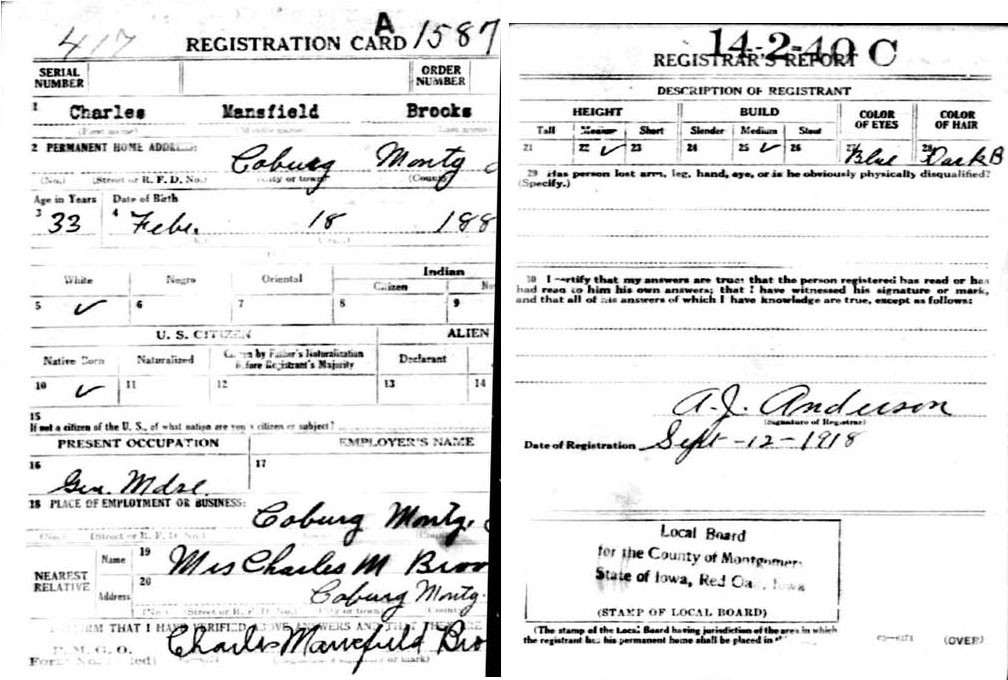 417 REGISTRATION CARD A 1587
SERIAL NUMBER ORDER NUMBER
1 Charles Mansfield Brooks
(First name) (Middle name) (Last name)
2 PERMANENT HOME ADDRESS: Coburg Montg
(No.) (Street or R. F. D. No.) (City or town) (County)
Age in Years Date of Birth
3 33 4 Febr. 18 188
White Negro Oriental Indian
Citizen No
5 ✓ 6 7 8 9
U. S. CITIZEN ALIEN
Native Born Naturalized Citizen by Father's Naturalization Before Registrant's Majority Declarant
10 ✓ 11 12 13 14
15
If not a citizen of the U. S., of what nation are you a citizen or subject?
PRESENT OCCUPATION EMPLOYER'S NAME
16 Gen. Mdse. 17
18 PLACE OF EMPLOYMENT OR BUSINESS:
Coburg Montg.
(No.) (Street or R. F. D. No.)
NEAREST RELATIVE Name 19 Mrs Charles M Broo
Address 20 Coburg Montg.
(No.) (Street or R. F. D. No.) (City or town) (County
I AFFIRM THAT I HAVE VERIFIED ABOVE ANSWERS AND THAT THEY ARE
P. M. G. O.
Form No.
Charles Mansfield Bro
14-2-40 C
REGISTRAR'S REPORT
DESCRIPTION OF REGISTRANT
HEIGHT BUILD COLOR OF EYES COLOR OF HAIR
Tall Medium Short Slender Medium Stout
21 22 ✓ 23 24 25 ✓ 26 27 Blue 28 Dark B
29 Has person lost arm, leg, hand, eye, or is he obviously physically disqualified?
(Specify.)
30 I certify that my answers are true; that the person registered has read or has
had read to him his own answers; that I have witnessed his signature or mark,
and that all of his answers of which I have knowledge are true, except as follows:
A. J. Anderson
(Signature of Registrar)
Date of Registration Sept-12-1918
Local Board
for the County of Montgomery
State of Iowa, Red Oak, Iowa
(STAMP OF LOCAL BOARD)
(The stamp of the Local Board having jurisdiction of the area in which
the registrant has his permanent home shall be placed in
(OVER)